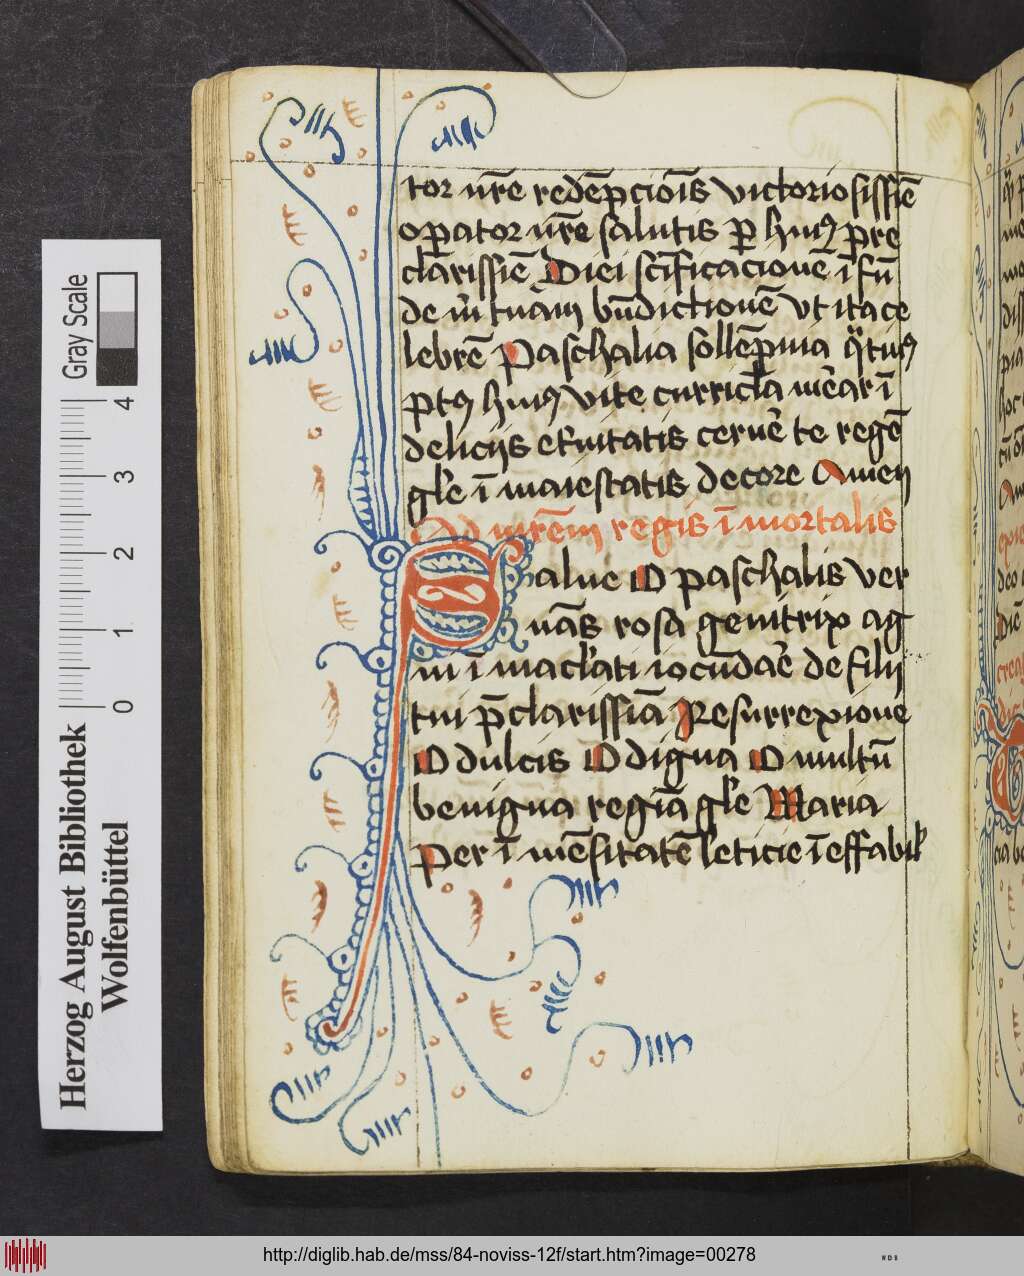 tor nr̄e redēpcōis victoriosissīe
operator nr̄e salutis ꝑ huiꝰ pre
clarissīe Diei scīficacionē ī fū
de m̄ tuam bn̄dictionē vt ita ce
lebrē Paschalia sollēpnia
ptꝰ huiꝰ vite curricl̄a
delicijs et̄nitatis te regē
gl̄e ī maiestatis decore Amen
Ad mr̄em regis īmortalis
Salue O paschalis ver
nās rosa genitrix ag
ni īmacl̓ati iocūdar̄e de filij
tui p̄clarissīa Resurrexione
O dulcis O digna O multū
benigna regīa gl̄e Maria
Per īmēsitatē leticie īeffabil̓
Herzog August Bibliothek
Wolfenbüttel
Gray Scale
0 1 2 3 4
http://diglib.hab.de/mss/84-noviss-12f/start.htm?image=00278